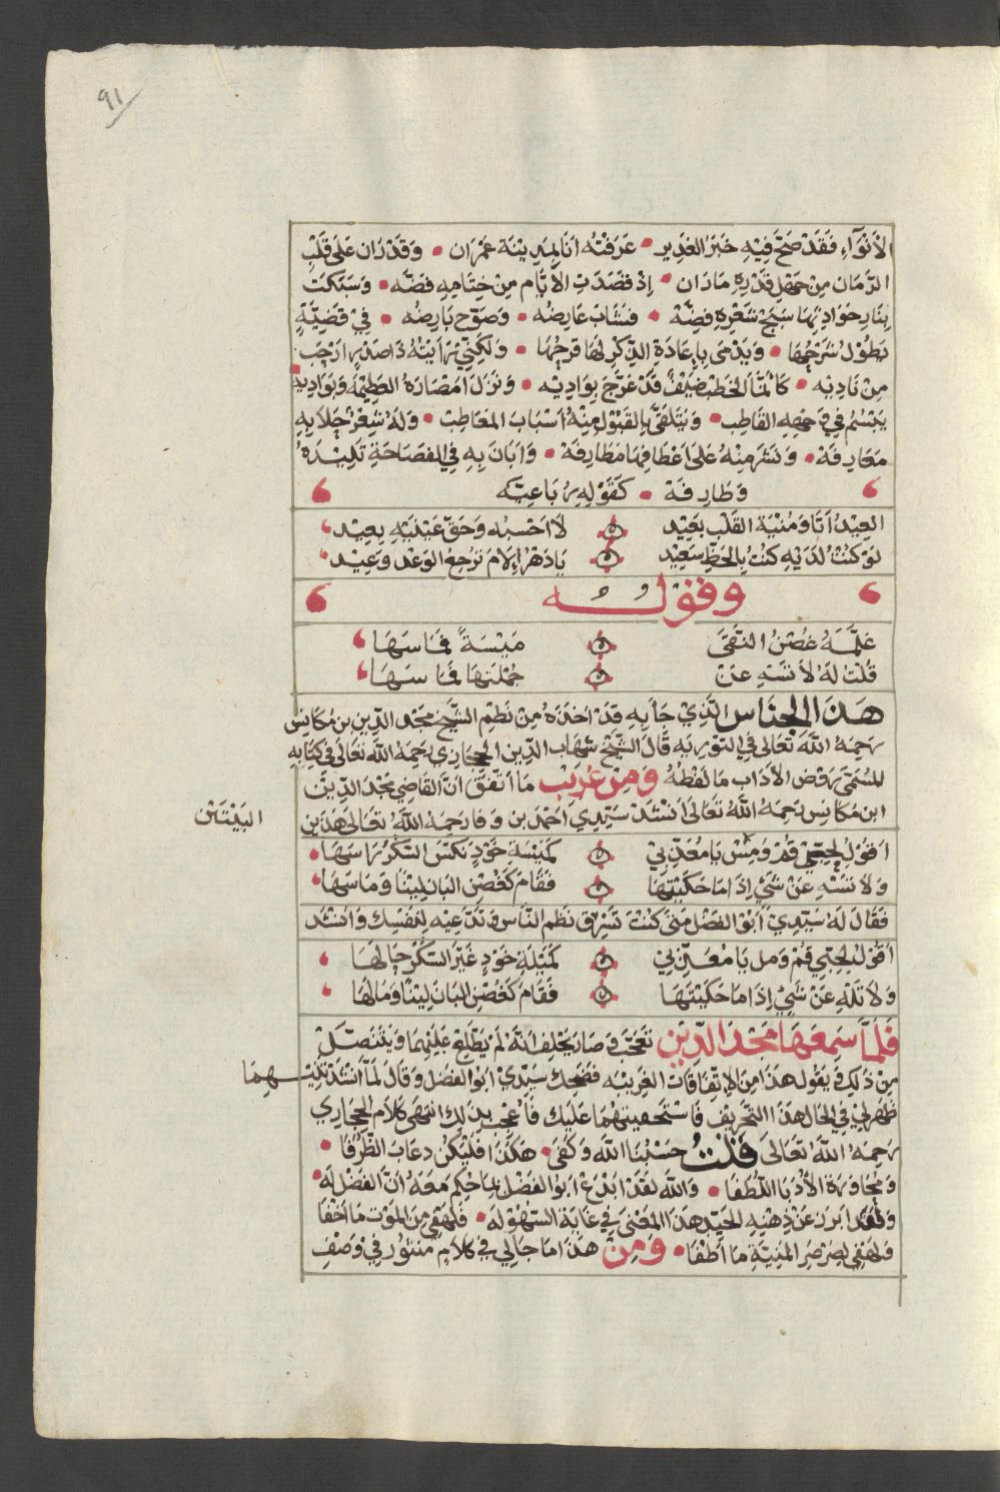 ٩١
الأنوَآءِ فَقَدْ صَحَّ فِيْهِ خَبَرُ الغَدِير • عَرَفْتُه أنَا بِمَدِينَة عَمْرَان • وَقَدْ رَان عَلَى قَلْبِ
الزَّمَان مِنْ جَهْلِ قَدْرِهِ مَا رَان • إذْ فَضَّت الأيَّام مِنْ خِتَامِهِ فَضَّه • وَسَبَكَتْ
بِنَارِ حَوَادِثِهَا سَبَجَ شَعْرِهِ فِضَّهْ • فَشَابَ عَارِضُه • وَصَوَّح بَارِضُه • فِيْ قَضِيَّةٍ
يَطُوْلُ شَرْحُهَا • وَيَدْمَى بِإعَادَةِ الذِّكْرِ لَهَا قَرْحُهَا • وَلَكِنِّيْ رَأيْتُهُ ذَا صَدْرٍ أرْحَبَ
مِنْ نَادِيْه • كَأنَّمَا الخَطْبُ ضَيْفٌ قَدْ عَرَّجَ بِوَادِيْه • وَنَزَلَ امْصَارَهُ العَظِيْمَةُ وَبَوَادِيه
يَبْتَسِمُ فِيْ وَجْهِهِ القَاطِب • وَيَتَلَقَّى بِالقَبُوْلِ مِنْهُ أسْبَابَ المَعَاطِبْ • وَلَهُ شِعْرٌ جَلَا بِهِ
مَعَارِفَهْ • وَنَشَرَ مِنْهُ عَلَى أعْطَافِهَا مَطَارِفَهْ • وَأبَانَ بِهِ فِي الفَصَاحَةِ تَلِيْدَهُ
وَطَارِفَهْ • كَقَوْلِهِ رُبَاعِيَّه
العِيْدُ أتَا وَمُنْيَةُ القَلْبِ بَعِيْد لَا أحْسِبُه وَحَقّ عَيْنَيْهِ بِعِيْد
لَوْ كُنْتُ لَدَيْهِ كُنْتُ بِالحَظِّ سَعِيْد يَا دَهْرُ إلَامَ تَرْجِعُ الوَعْد وَعِيْد
وَقَوْلُه
عَلَّمَهُ غُصْنُ النَّقَى مَيْسَةً فَمَا سَهَا
قُلْتُ لَهُ لَا تَسْهِ عَنْ جُمْلَتِهَا فَمَا سَهَا
هَذَا الجِنَاس الَّذِيْ جَا بِهِ قَدْ أخَذَهُ مِنْ نَظْمِ الشَّيْخ مَجْد الدِّين بن مَكَانِس
رَحِمَهُ اللهُ تَعَالَى فِي التَّوْرِيَه قَالَ الشَّيْخ شِهَاب الدِّين الحِجَازِي رَحِمَهُ اللهُ تَعَالَى فِي كِتَابِهِ
المُسَمَّى رَوْض الآدَاب مَا لَفْظُهُ وَمِنْ غَرِيْبِ مَا أتَّفَقَ أنَّ القَاضِي مَجْد الدِّيْن
ابن مَكَانِس رَحِمَهُ اللهُ تَعَالَى أنْشَدَ سَيِّدِي أحْمَد بن وَفَا رَحِمَهُ اللهُ تَعَالَى هَذَيْنِ
البَيْتَيْن
أقُوْلُ لِحِبِّيْ قُمْ وَمِسْ يَا مُعَذِّبِيْ كَمَيْسَةِ خَوْدٍ نَكَّسَ السُّكْرُ رَاسَهَا
وَلَا تَسْهِ عَنْ شَيْءٍ إذَا مَا حَكَيْتَهَا فَقَامَ كَغُصْنِ البَانِ لِيْنًا وَمَا سَهَا
فَقَالَ لَهُ سَيِّدِيْ أبُو الفَضْل مَتَى كُنْتَ تَسْرِق نَظْم النَّاس وَتَدَّعِيْه لِنَفْسِك وَأنْشَد
أقُوْلُ لِحِبِّي قُمْ وَمِل يَا مُعَذِّبِي كَمَيْلَةِ خَوْدٍ غَيَّرَ السُّكْرُ حَالَهَا
وَلَا تَلْهِ عَنْ شَيْءٍ إذَا مَا حَكَيْتَهَا فَقَامَ كَغُصْنِ البَانِ لِيْنًا وَمَا لَهَا
فَلَمَّا سَمِعَهَا مَجْد الدِّيْن تَعَجَّبَ وَصَارَ يَحْلِف أنَّهُ لَمْ يَطَّلِعْ عَلَيْهِمَا وَيَتَنَصَّلُ
مِنْ ذَلِكَ وَيَقُول هَذَا مِنَ الإتِّفَاقَات الغَرِيْبَه فَضَحِكَ سَيِّدِيْ أبُو الفَضْل وَقَالَ لَمَّا أنْشَدْتَنِيْـهِمَا
ظَهَرَ لِيْ فِي الحَال هَذَا التَّحْرِيْف فَاسْتَحْضَرْتُهُمَا عَلَيْك فَأُعْجِبَ بِذَلِك انتهى كَلَام الحِجَازِي
رَحِمَهُ اللهُ تَعَالَى قُلْتُ حَسْبُنَا الله وَكَفَى • هَكَذَا فَلْيَكُنْ دِعَابَ الظُّرَفَا •
وَمُحَاوَرَة الأُدَبَا اللُّطَفَا • وَاللهِ لَقَدْ أبْدَعَ أبُو الفَضْل بِمَا حَكِم مَعَهُ أنَّ الفَضْلَ لَهُ •
وَلَقَد أبْرَزَ عَنْ ذِهْنِهِ الجَيِّد هَذَا المَعْنَى فِيْ غَايَةِ السُّهُوْلَهْ • فَلَهْفِيْ مِنَ المَوْتِ مَا أخْفَا
وَلَهْفِي لِصَرْصَرِ المَنِيَّةِ مَا أطْفَا • وَمِنْ هَذَا مَا جَا لِيْ فِيْ كَلَامٍ مَنْثُوْر فِيْ وَصْفِ